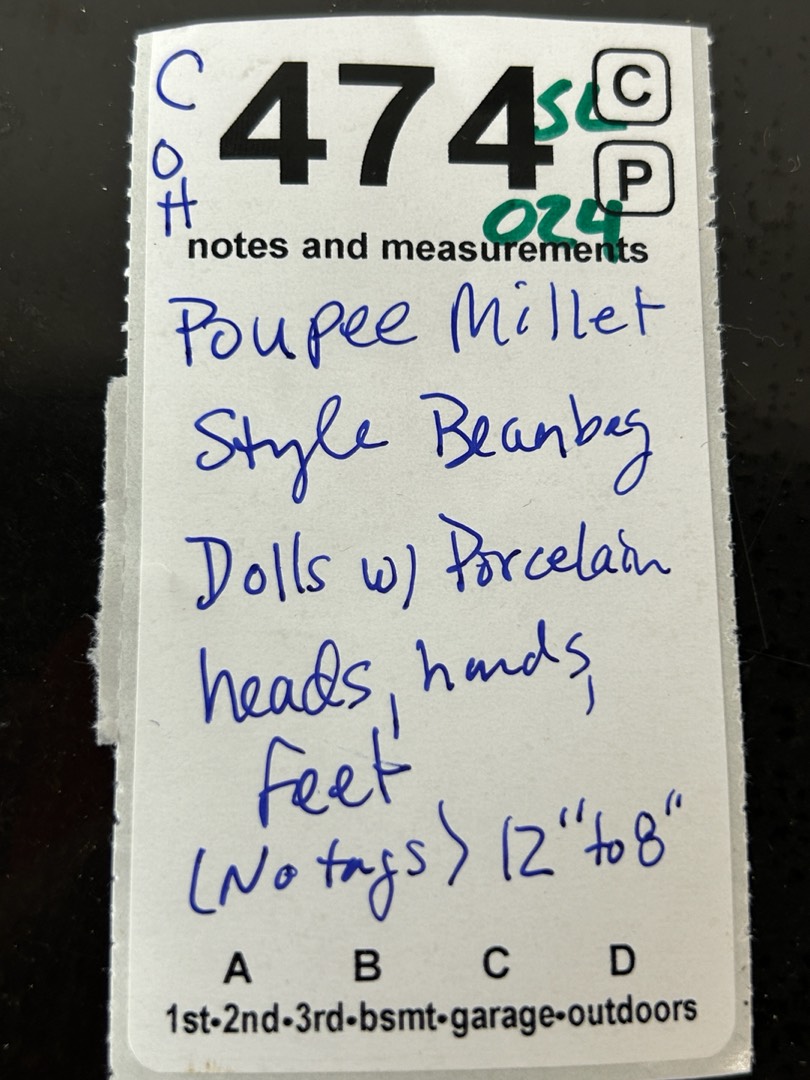 C
O
H
474
SL
C
P
024
notes and measurements
Poupee Millet
Style Beanbag
Dolls w/ Porcelain
heads, hands,
feet
(No tags) 12" to 8"
A B C D
1st•2nd•3rd•bsmt•garage•outdoors